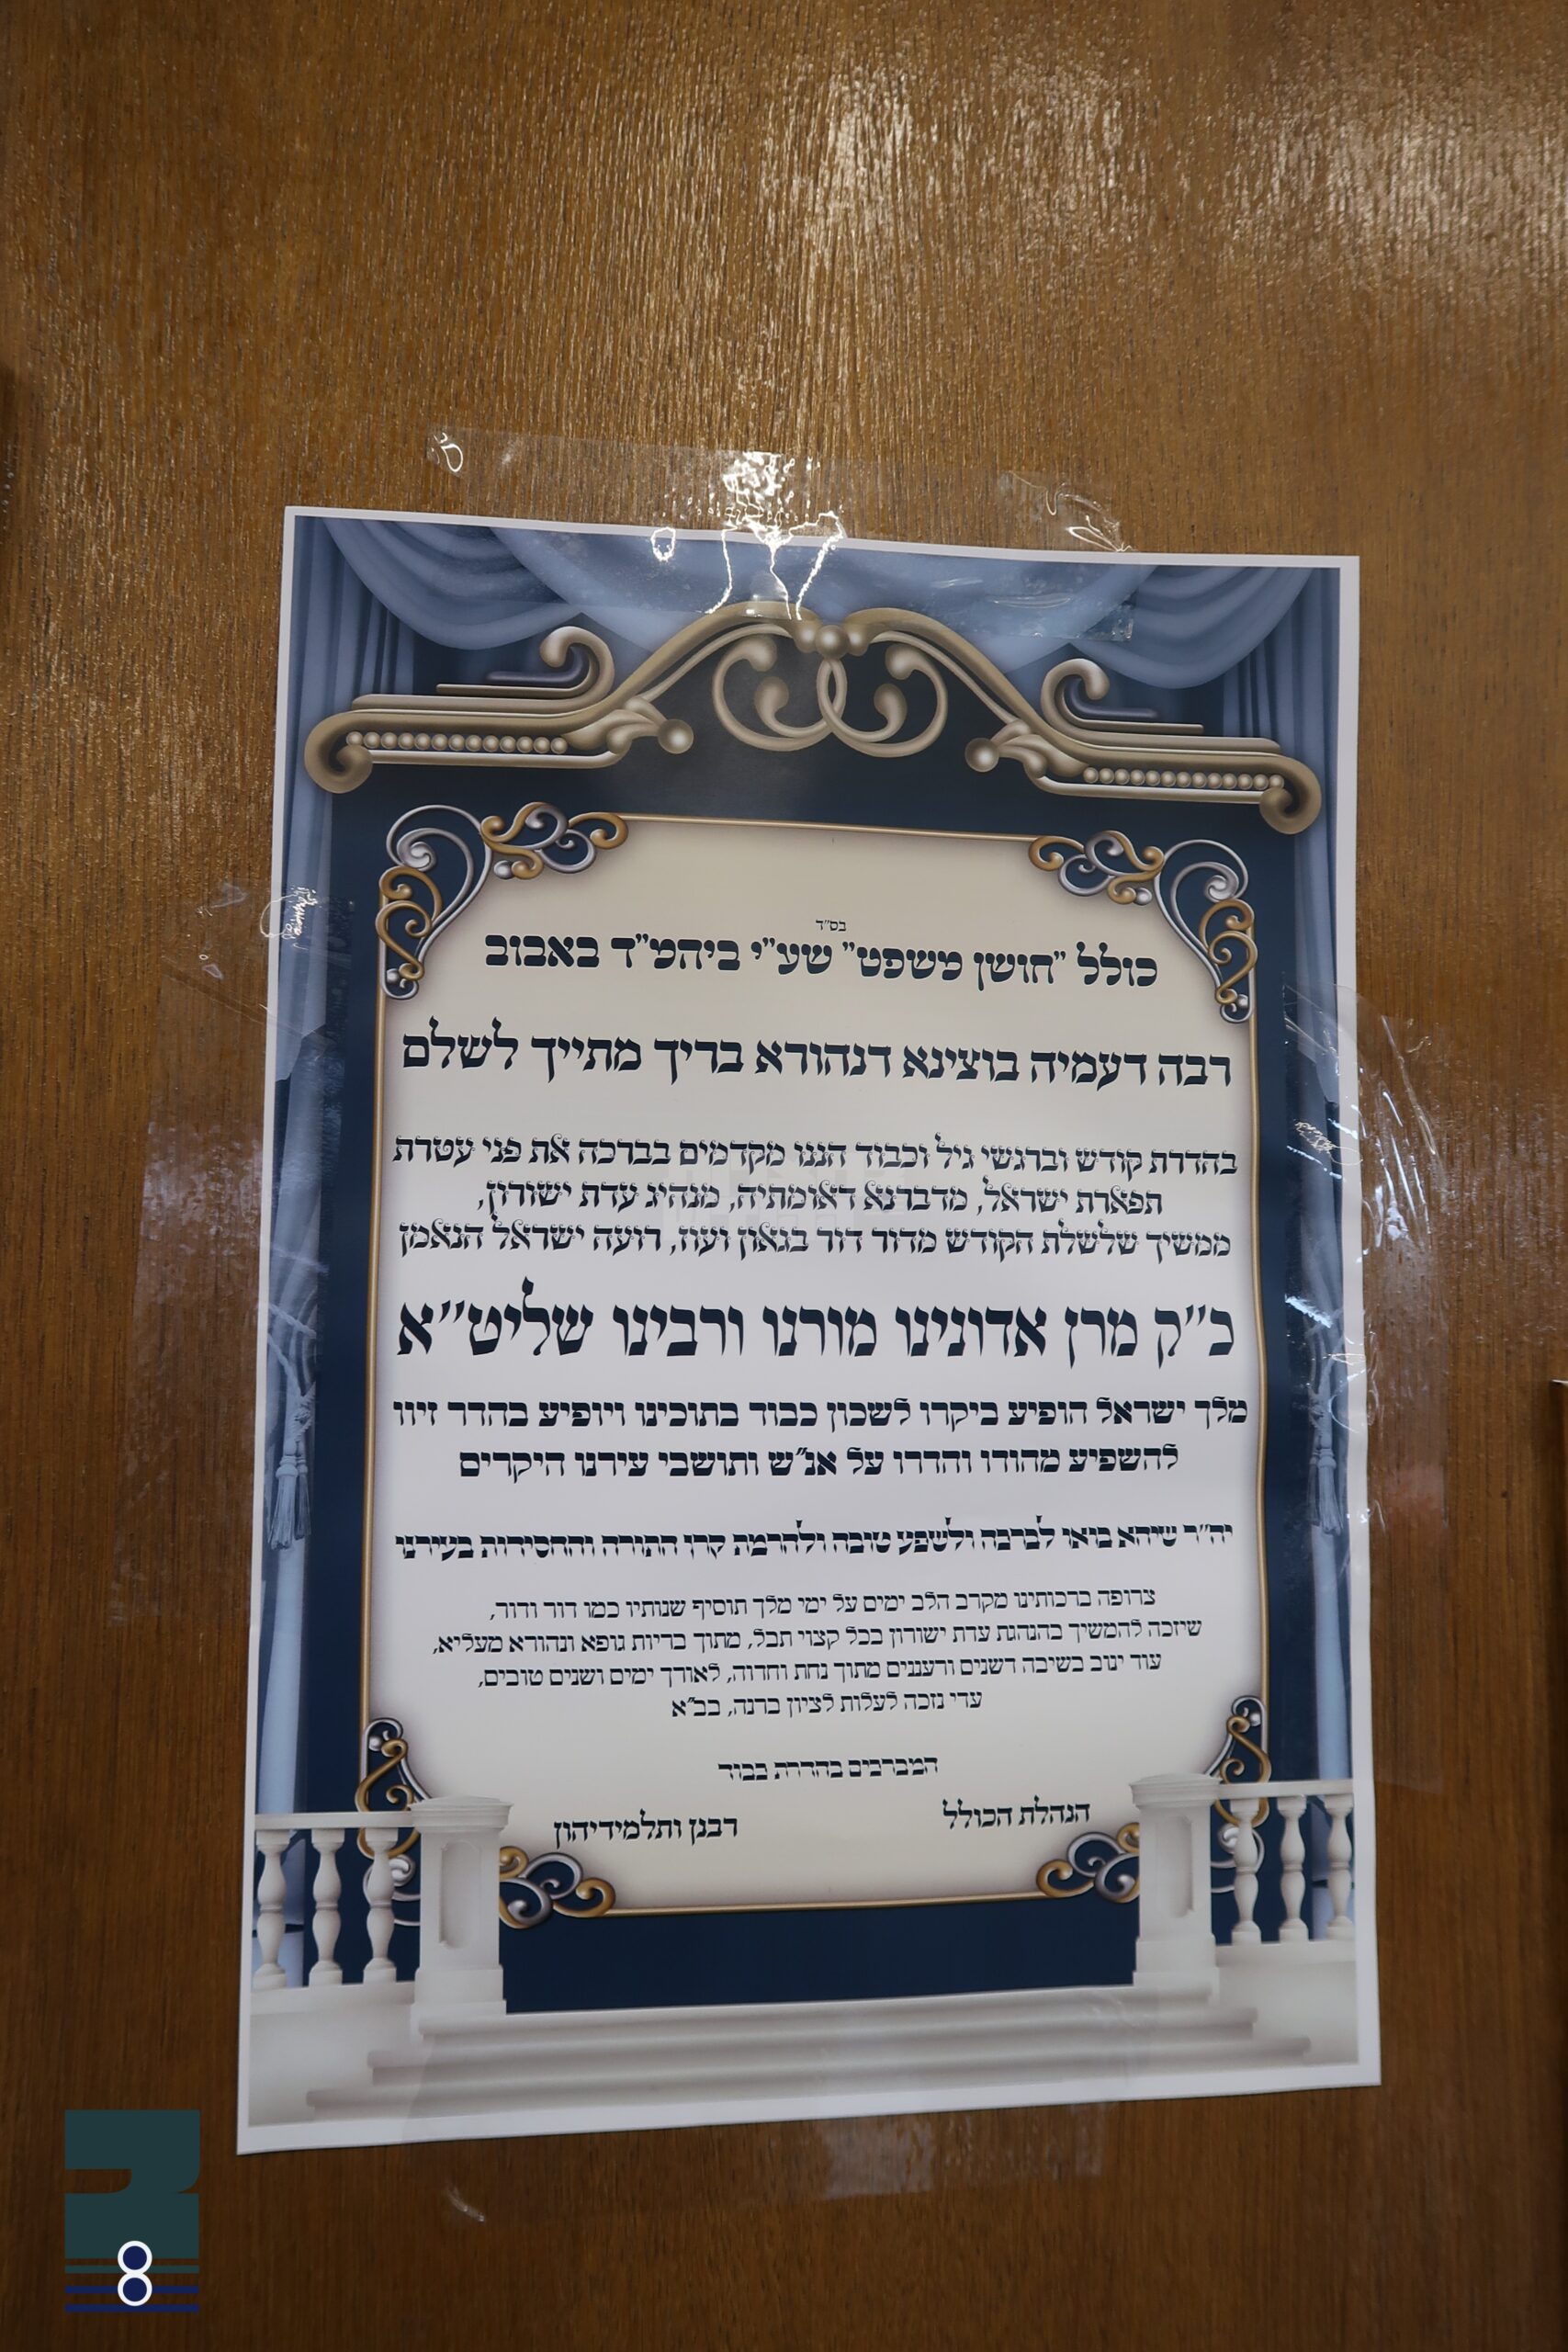 בס"ד
כולל "חושן משפט" שע"י ביהמ"ד באבוב
רבה דעמיה בוצינא דנהורא בריך מתייך לשלם
בהדרת קודש וברגשי גיל וכבוד הננו מקדמים בברכה את פני עטרת
תפארת ישראל, מדברנא דאומתיה, מנהיג עדת ישורון,
ממשיך שלשלת הקודש מדור דור בגאון ועוז, רועה ישראל הנאמן
כ"ק מרן אדונינו מורנו ורבינו שליט"א
מלך ישראל הופיע ביקרו לשכון כבוד בתוכינו ויופיע בהדר זיוו
להשפיע מהודו והדרו על אנ"ש ותושבי עירנו היקרים
יה"ר שיהא בואו לברכה ולשפע טובה ולהרמת קרן התורה והחסידות בעירנו
צרופה ברכותינו מקרב הלב ימים על ימי מלך תוסיף שנותיו כמו דור ודור,
שיזכה להמשיך בהנהגת עדת ישורון בכל קצוי תבל, מתוך בריות גופא ונהורא מעליא,
עוד ינוב בשיבה דשנים ורעננים מתוך נחת וחדוה, לאורך ימים ושנים טובים,
עדי נזכה לעלות לציון ברנה, בב"א
המברכים בהדרת כבוד
הנהלת הכולל רבנן ותלמידיהון